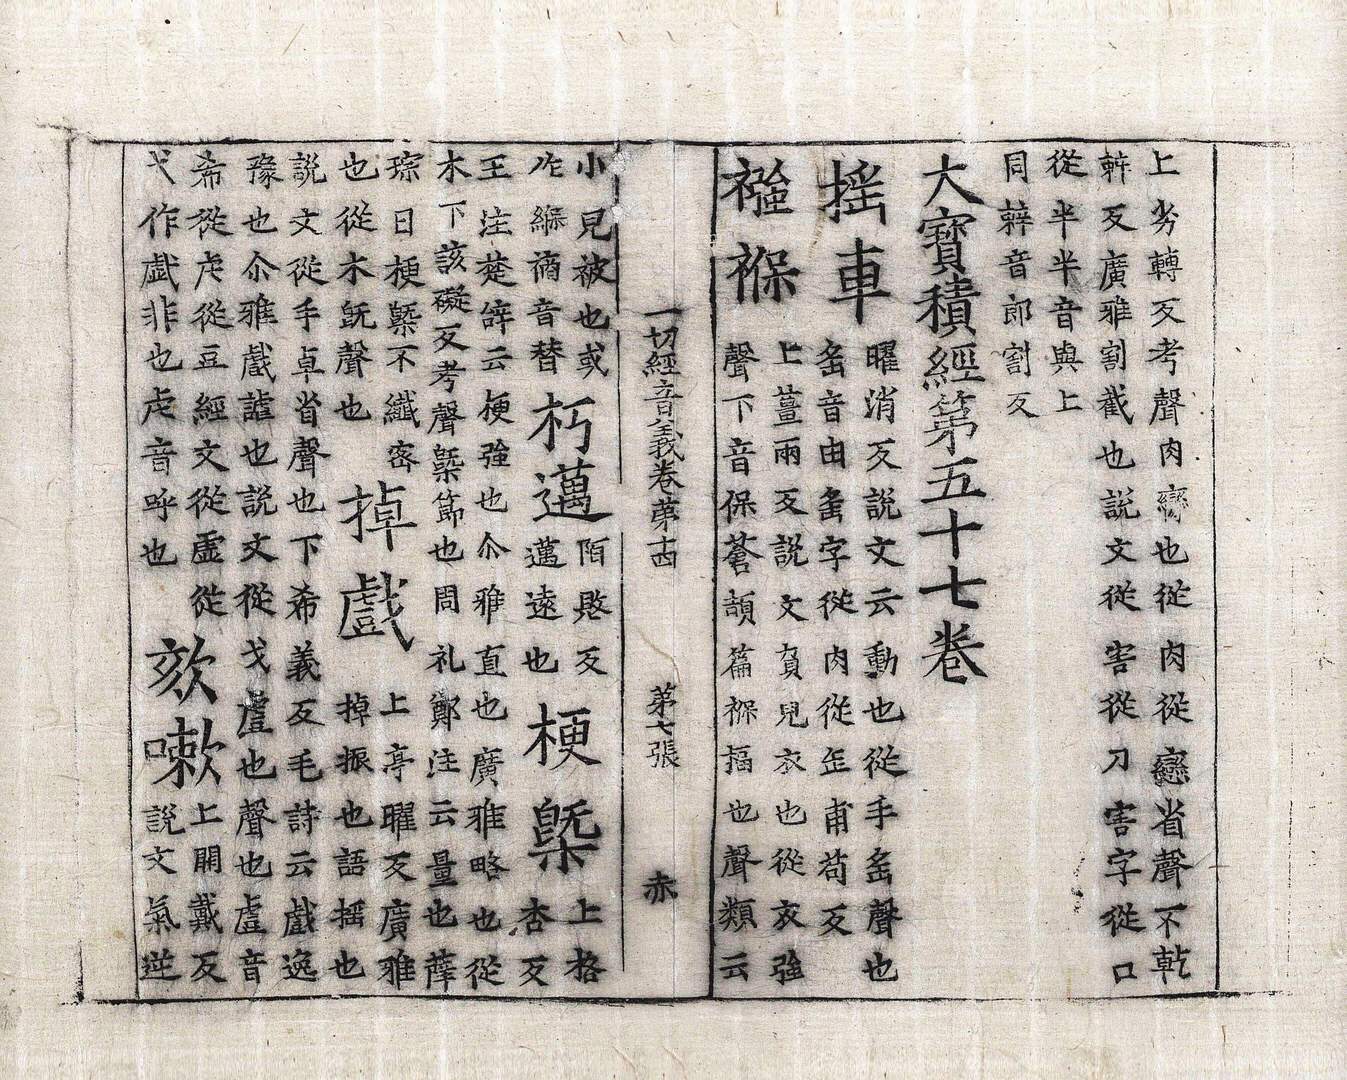 上劣轉反考聲肉臠也從肉從戀省聲不乾
幹反廣雅割截也說文從害從刀害字從口
從半半音與上
同幹音郎割反
大寶積經第五十七卷
搖車
曜消反說文云動也從手䍃聲也
䍃音由䍃字從肉從缶甫苟反
襁褓
上薑兩反說文負兒衣也從衣強
聲下音保蒼頡篇褓㒓也聲類云
一切經音義卷第十四
第七張
赤
小兒被也或
作緥謫音替
朽邁
陌敗反
邁遠也
梗槩
上格
杏反
王注楚辭云梗強也尒雅直也廣雅略也從
木下該礙反考聲槩節也周礼鄭注云量也薛
琮曰梗槩不纖密
也從木旣聲也
掉戲
上亭曜反廣雅
掉振也語搖也
說文從手卓省聲也下希義反毛詩云戲逸
豫也尒雅戲謔也說文從戈䖒也聲也䖒音
希從虍從豆經文從虛從
弋作戯非也虍音呼也
欬嗽
上開戴反
說文氣逆